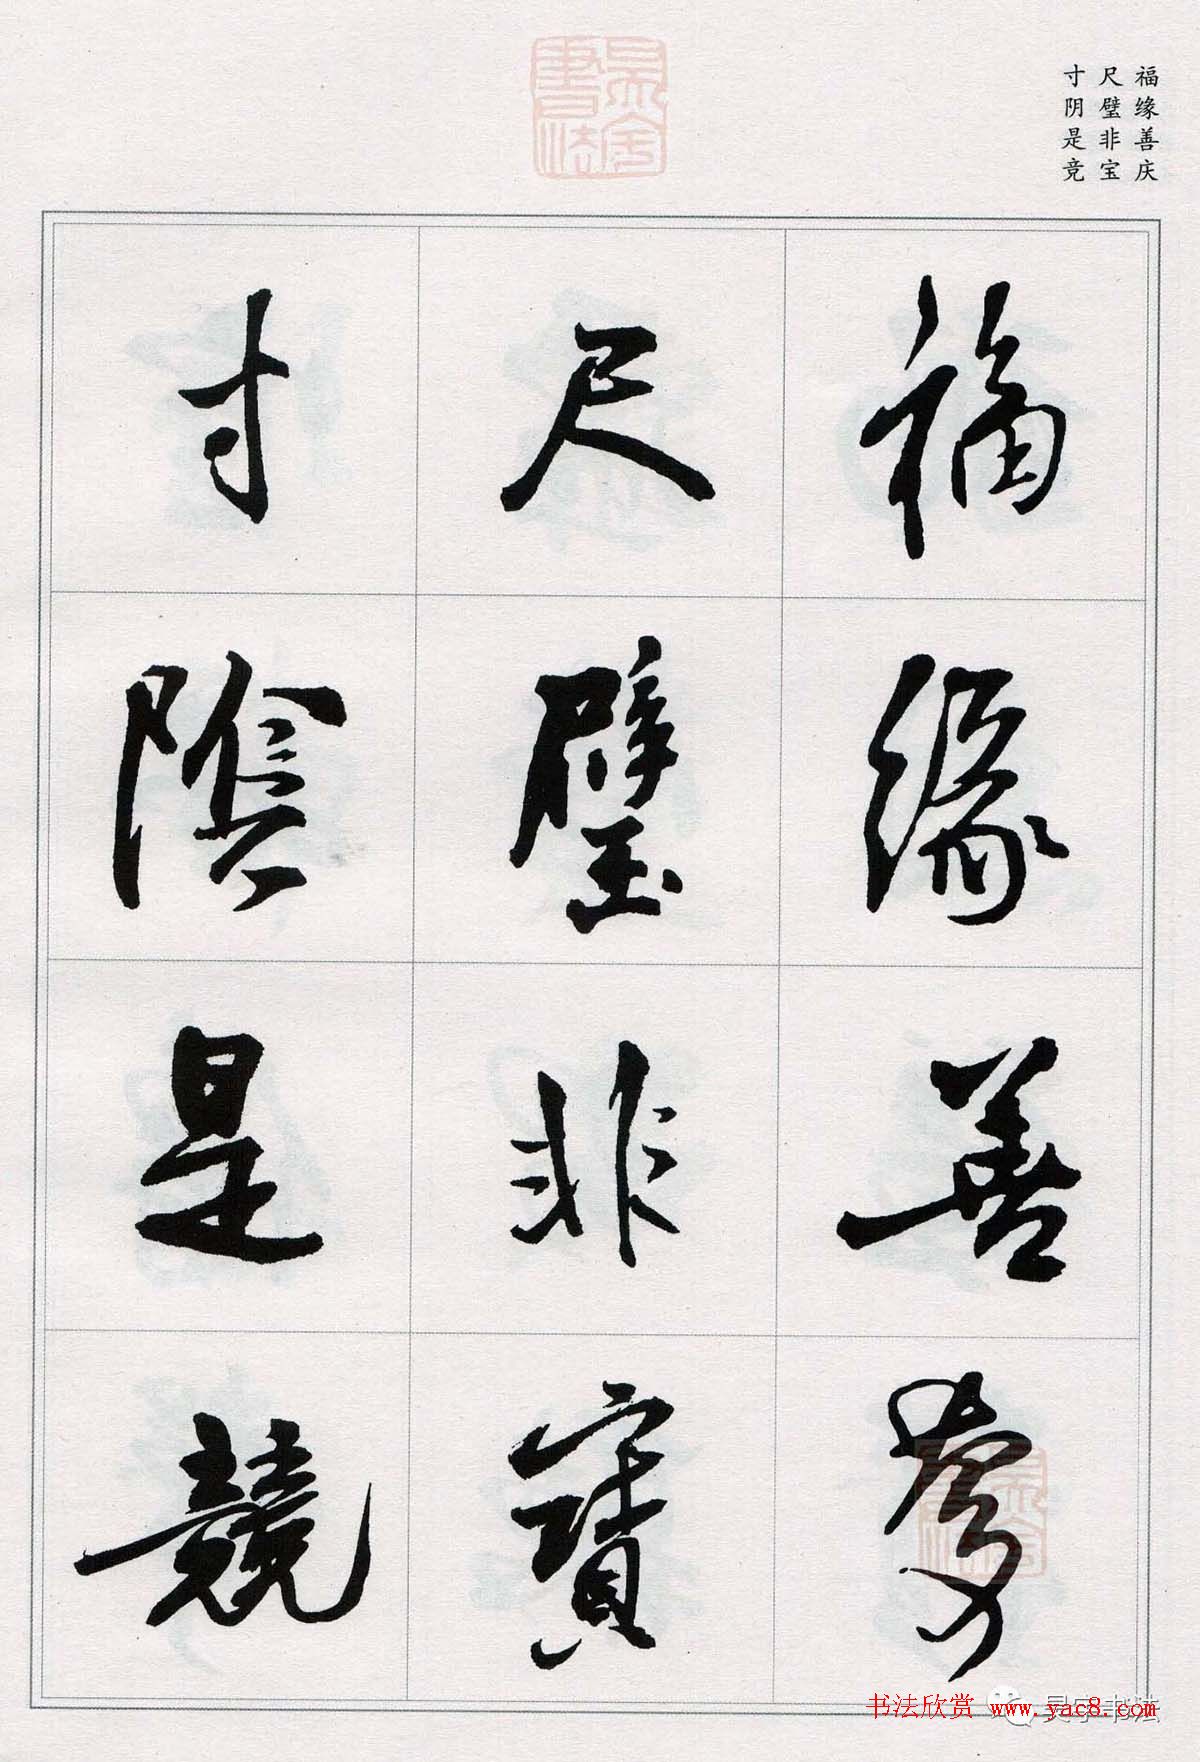 福缘善庆
尺璧非宝
寸阴是竞
福緣善慶
尺璧非寶
寸陰是競
书法欣赏 www.yac8.com